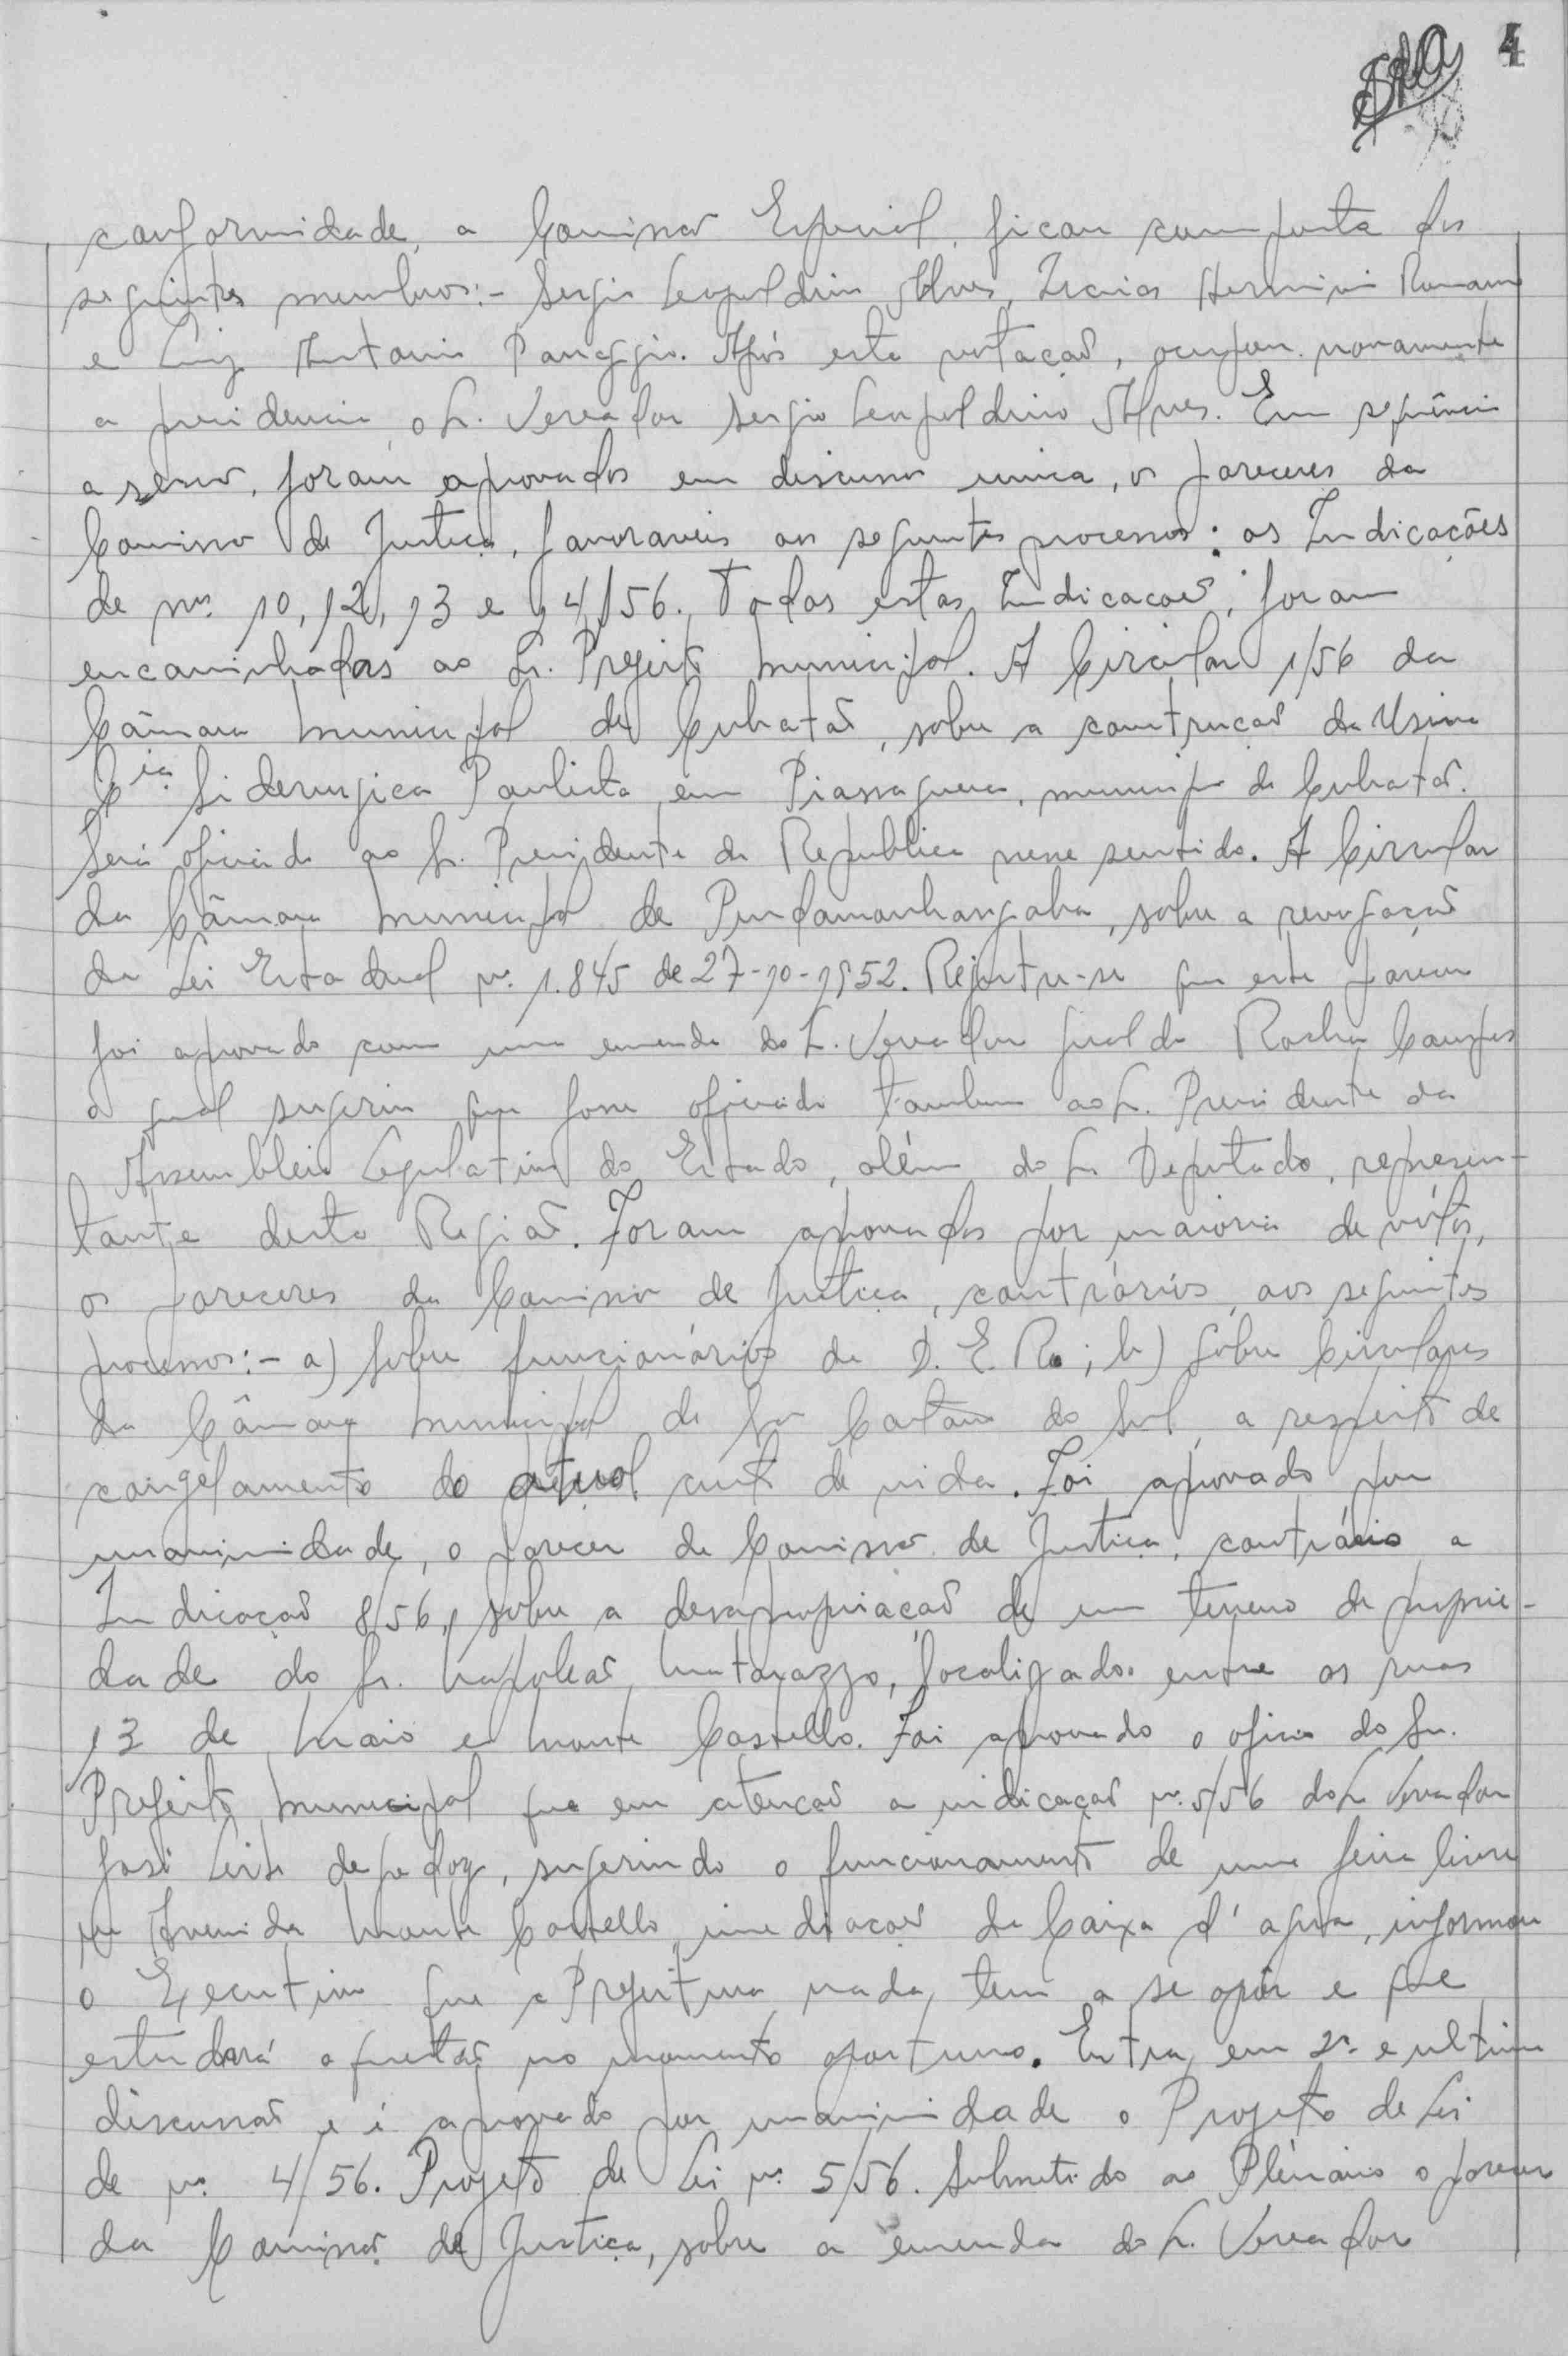 4
conformidade, a Comissão Especial, ficou composta dos
seguintes membros:- Sergio Leopoldino Alves, Herminio Romano
e Luiz Antonio Paneggio. Após esta votação, ocupou novamente
a presidencia o Sr. Vereador Sergio Leopoldino Alves. Em sequência
a sessão, foram aprovados em discussão unica, os pareceres da
Comissão de Justiça, favoraveis aos seguintes processos: as Indicações
de nºs 10, 12, 13 e 14/56. Todas estas Indicações, foram
encaminhadas ao Sr. Prefeito Municipal. A Circular 1/56 da
Câmara Municipal de Cubatão, sobre a construção da Usina
Cia Siderurgica Paulista, em Piassaguera, municipio de Cubatão.
Será oficiado ao Sr. Presidente da Republica nesse sentido. A Circular
da Câmara Municipal de Pindamonhangaba, sobre a revogação
da Lei Estadual nº 1.845 de 27-10-1952. Registre-se que este parecer
foi aprovado com uma emenda do Sr. Vereador Geraldo Rocha Campos
o qual sugeriu que fosse oficiado tambem ao Sr. Presidente da
Assembleia Legislativa do Estado, além do Sr. Deputado, represen-
tante desta Região. Foram aprovados por maioria de votos,
os pareceres da Comissão de Justiça, contrários, aos seguintes
processos:- a) Sobre funcionários do D. E. R.; b) Sobre Circulares
da Câmara Municipal de São Caetano do Sul, a respeito de
congelamento do atual custo de vida. Foi aprovado por
unanimidade, o parecer da Comissão de Justiça, contrário a
Indicação 8/56, sobre a desapropriação de um terreno de proprie-
dade do Sr. Napoleão Matarazzo, localizado entre as ruas
13 de Maio e Monte Castello. Foi aprovado o oficio do Sr.
Prefeito Municipal que em atenção a indicação nº 5/56 do Sr. Vereador
José Leite de Godoy, sugerindo o funcionamento de uma feira livre
na Avenida Monte Castello, imediações da Caixa d'agua, informou
o Executivo que a Prefeitura nada tem a se opôr e que
estudará a questão no momento oportuno. Entra em 2ª e ultima
discussão e é aprovado por unanimidade o Projeto de Lei
de nº 4/56. Projeto de Lei nº 5/56. Submetido ao Plenário o parecer
da Comissão de Justiça, sobre a emenda do Sr. Vereador